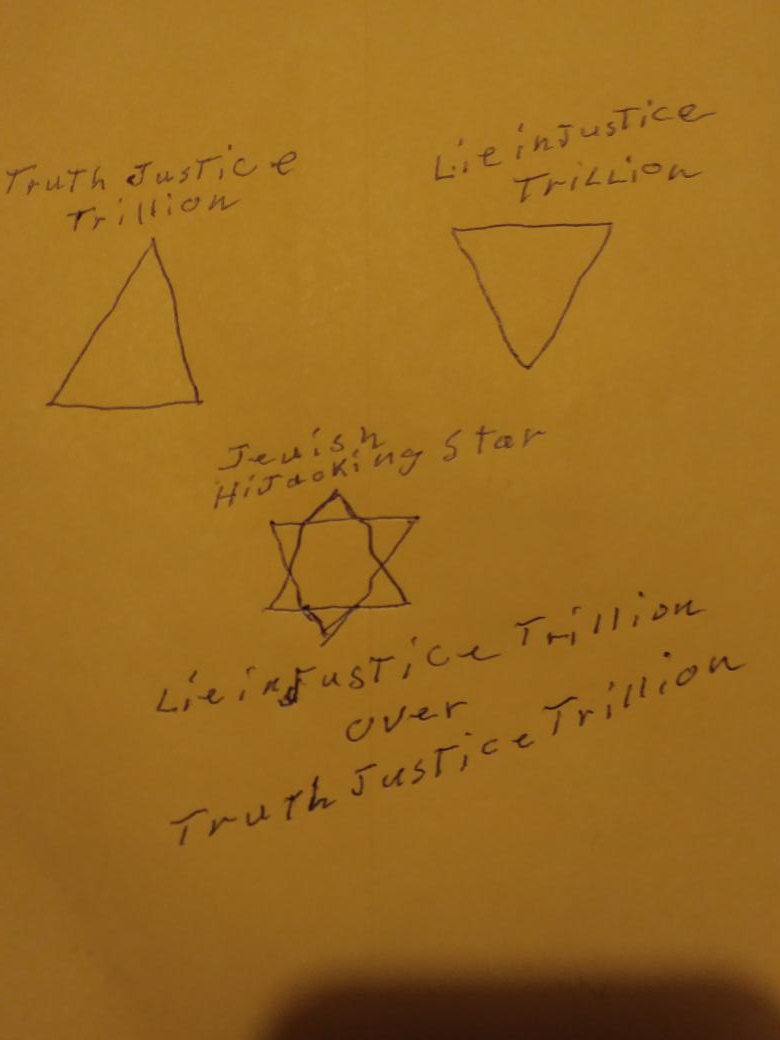 Truth Justice
Trillion
Lie inJustice
Trillion
Jewish
HiJacking Star
Lie inJustice Trillion
over
Truth Justice Trillion